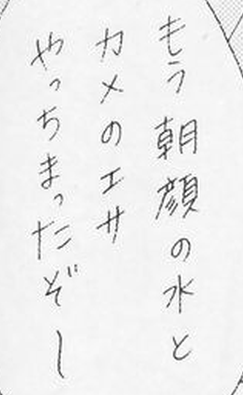 もう朝顔の水と
カメのエサ
やっちまったぞー